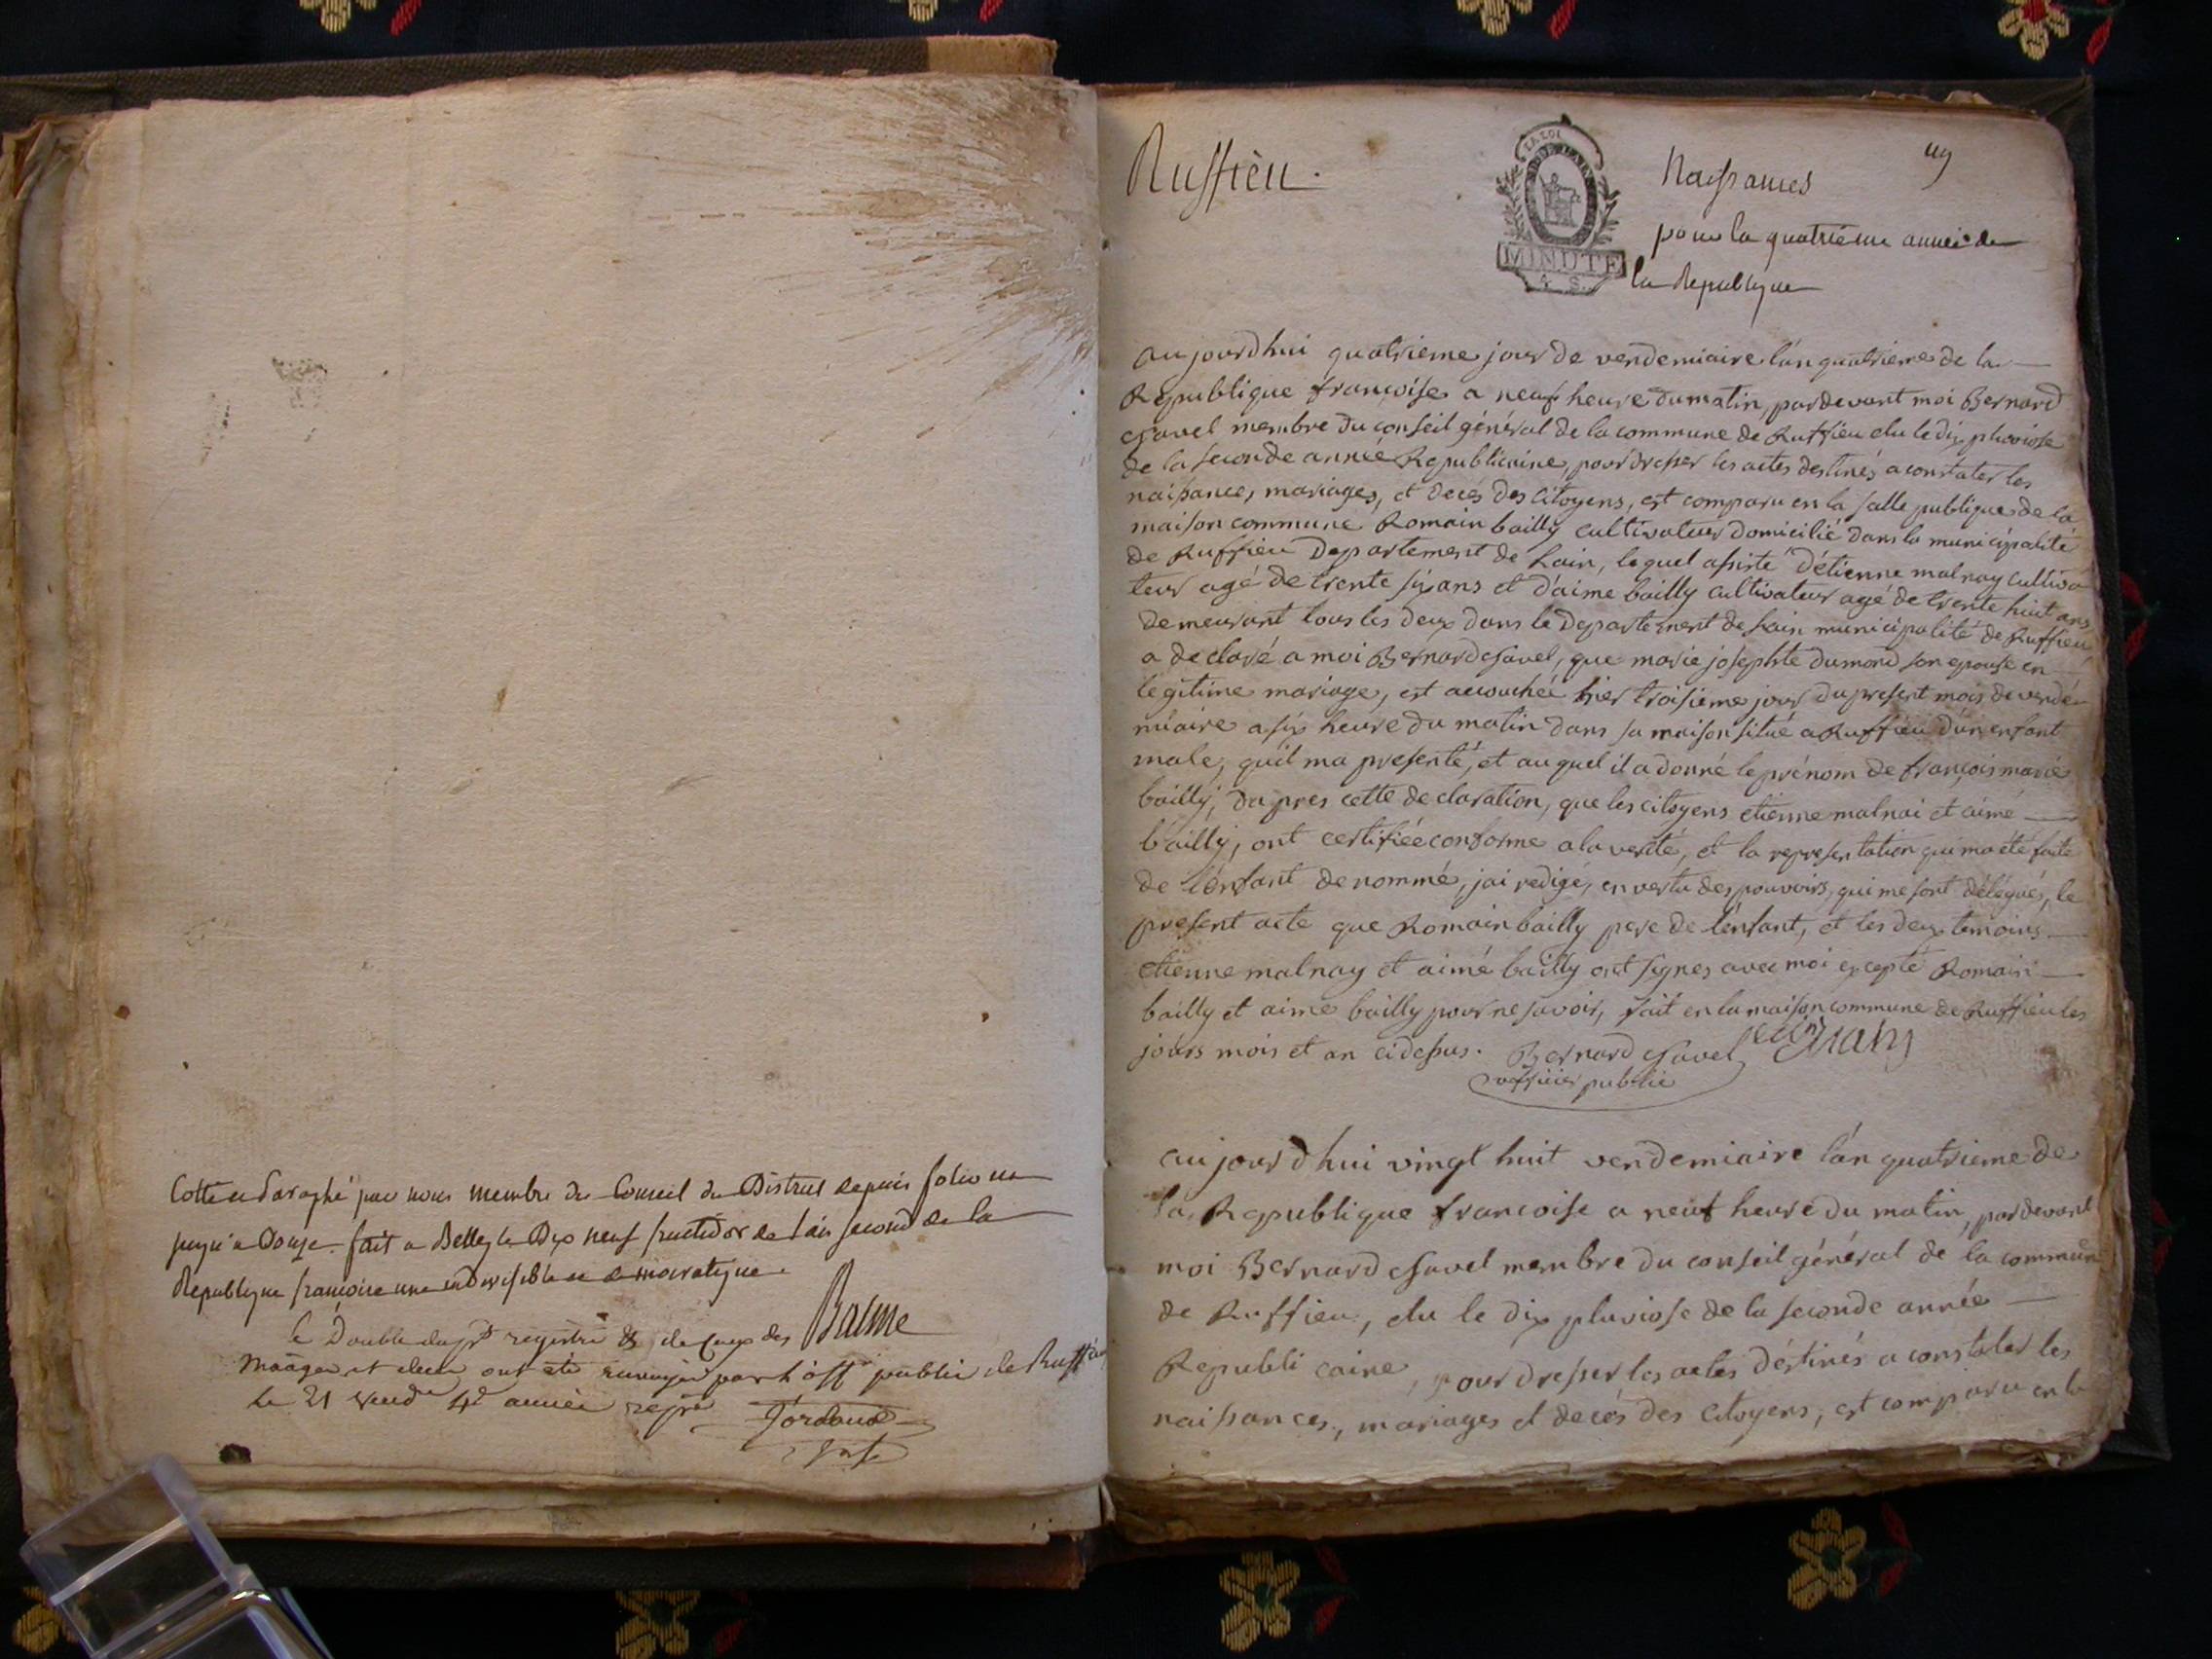 Cotté et Paraphé par nous membre du Conseil du District depuis folio un
jusqu'a Douze. fait a Belley le Dix neuf fructidor de l'an second de la
Republique francoise une indivisible et democratique.
Balme
le Double du pt registre & de ceux des
mariages et deces ont été envoyés par l'off public de Ruffieu
le 21 vend 4e année repre
Ruffieu.
LA LOI
MINUTE
Naissances
pour la quatrieme année de
la Republique
aujourdhui quatrieme jour de vendemiaire l'an quatrieme de la
Republique françoise a neuf heure du matin, pardevant moi Bernard
Savel membre du conseil général de la commune de Ruffieu elu le dix pluviose
de la seconde année Republicaine, pour dresser les actes destinés a constater les
naissance, mariages, et decés des Citoyens, est comparu en la salle publique de la
maison commune Romain bailly cultivateur domicilié dans la municipalité
de Ruffieu Departement de Lain, lequel assisté d'étienne malnay cultiva
teur agé de trente six ans et d'aime bailly cultivateur agé de trente huit ans
demeurant tous les deux dans le Departement de Lain municipalité de Ruffieu
a declaré a moi Bernard Savel, que marie josephte dumond son epouse en
legitime mariage, est accouchée hier troisieme jour du present mois de vendé
miaire a six heure du matin dans sa maison situé a Ruffieu d'un enfant
male, quil ma presenté, et auquel il a donné le prénom de françois marie
bailly, da pres cette declaration, que les citoyens etienne malnai et aimé
bailly, ont certifiée conforme a la verité, et la representation qui ma été faite
de l'enfant denommé, jai redigé, en vertu des pouvoirs, qui me sont délégués, le
present acte que Romain bailly pere de l'enfant, et les deux temoins
etienne malnay et aimé bailly ont signes avec moi excepté Romain
bailly et aime bailly pour ne savoir, fait en la maison commune de Ruffieu les
jours mois et an ci dessus. Bernard Savel
officier public
aujourdhui vingt huit vendemiaire l'an quatrieme de
la Republique francoise a neuf heure du matin, pardevant
moi Bernard Savel membre du conseil général de la commune
de Ruffieu, elu le dix pluviose de la seconde année
Republi caine, pour dresser les actes déstinés a constater les
naissances, mariages et decés des citoyens, est comparu en la